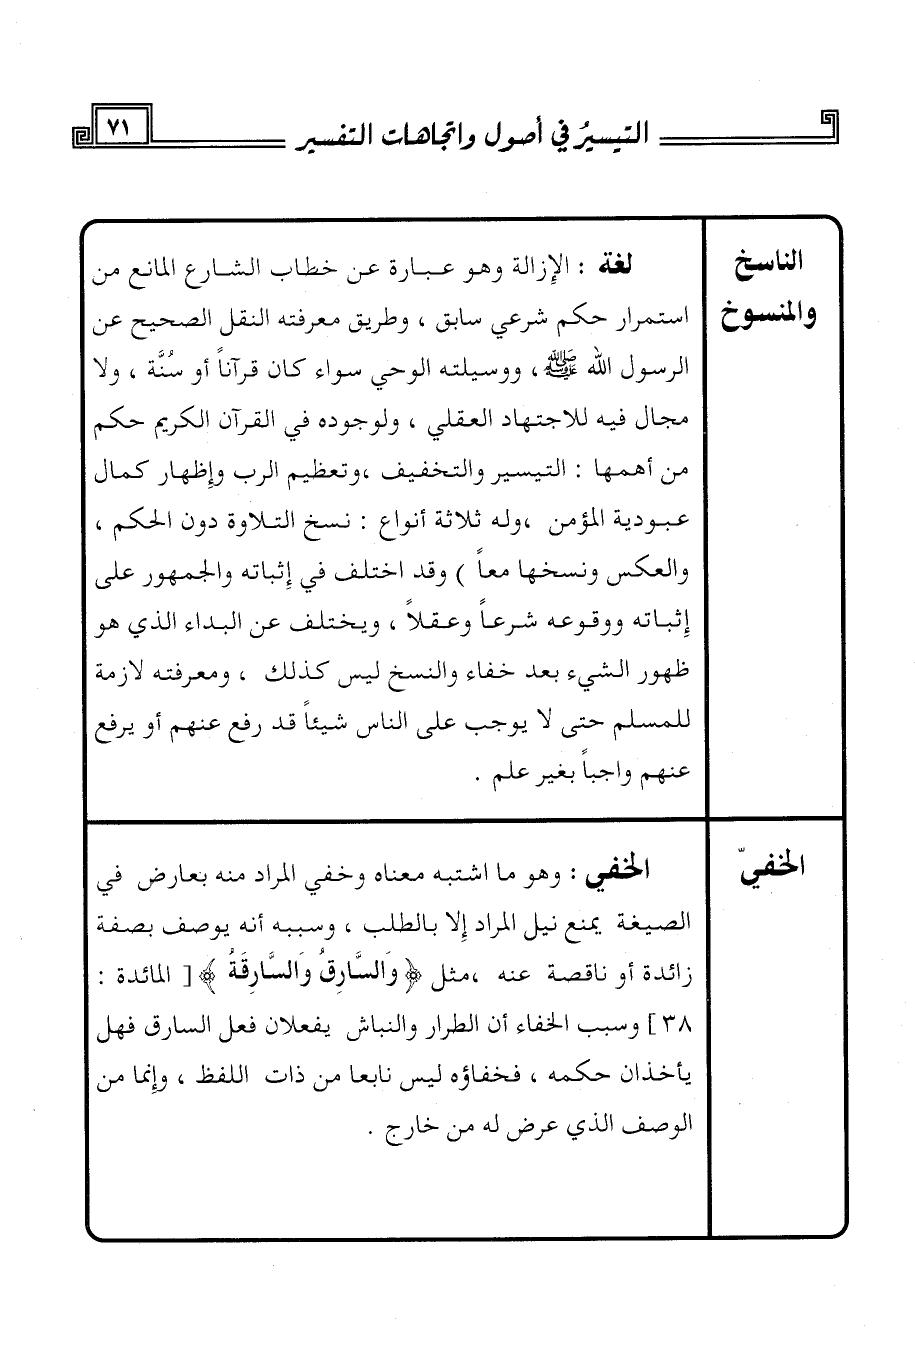 التيسيرُ في أصول واتجاهات التفسير
٧١
الناسخ
والمنسوخ
لغة : الإزالة وهو عبارة عن خطاب الشارع المانع من
استمرار حكم شرعي سابق ، وطريق معرفته النقل الصحيح عن
الرسول الله ﷺ، ووسيلته الوحي سواء كان قرآناً أو سُنَّة ، ولا
مجال فيه للاجتهاد العقلي ، ولوجوده في القرآن الكريم حكم
من أهمها : التيسير والتخفيف ،وتعظيم الرب وإظهار كمال
عبودية المؤمن ،وله ثلاثة أنواع : نسخ التلاوة دون الحكم ،
والعكس ونسخها معاً ) وقد اختلف في إثباته والجمهور على
إثباته ووقوعه شرعاً وعقلاً ، ويختلف عن البداء الذي هو
ظهور الشيء بعد خفاء والنسخ ليس كذلك ، ومعرفته لازمة
للمسلم حتى لا يوجب على الناس شيئاً قد رفع عنهم أو يرفع
عنهم واجباً بغير علم .
الخفيّ
الخفي : وهو ما اشتبه معناه وخفي المراد منه بعارض في
الصيغة يمنع نيل المراد إلا بالطلب ، وسببه أنه يوصف بصفة
زائدة أو ناقصة عنه ،مثل ﴿ وَالسَّارِقُ وَالسَّارِقَةُ ﴾ [ المائدة :
٣٨ ] وسبب الخفاء أن الطرار والنباش يفعلان فعل السارق فهل
يأخذان حكمه ، فخفاؤه ليس نابعا من ذات اللفظ ، وإنما من
الوصف الذي عرض له من خارج .